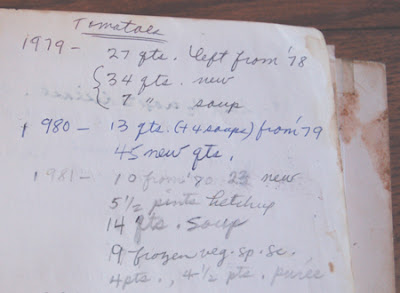 Tomatoes
1979 - 27 qts. left from '78
34 qts. new
7 " soup
1980 - 13 qts. (+4 soups) from '79
45 new qts.
1981 - 10 from '80 23 new
5 1/2 pints ketchup
14 qts. soup
19 frozen veg. sp. sc.
4 pts., 4 1/2 pts. purée